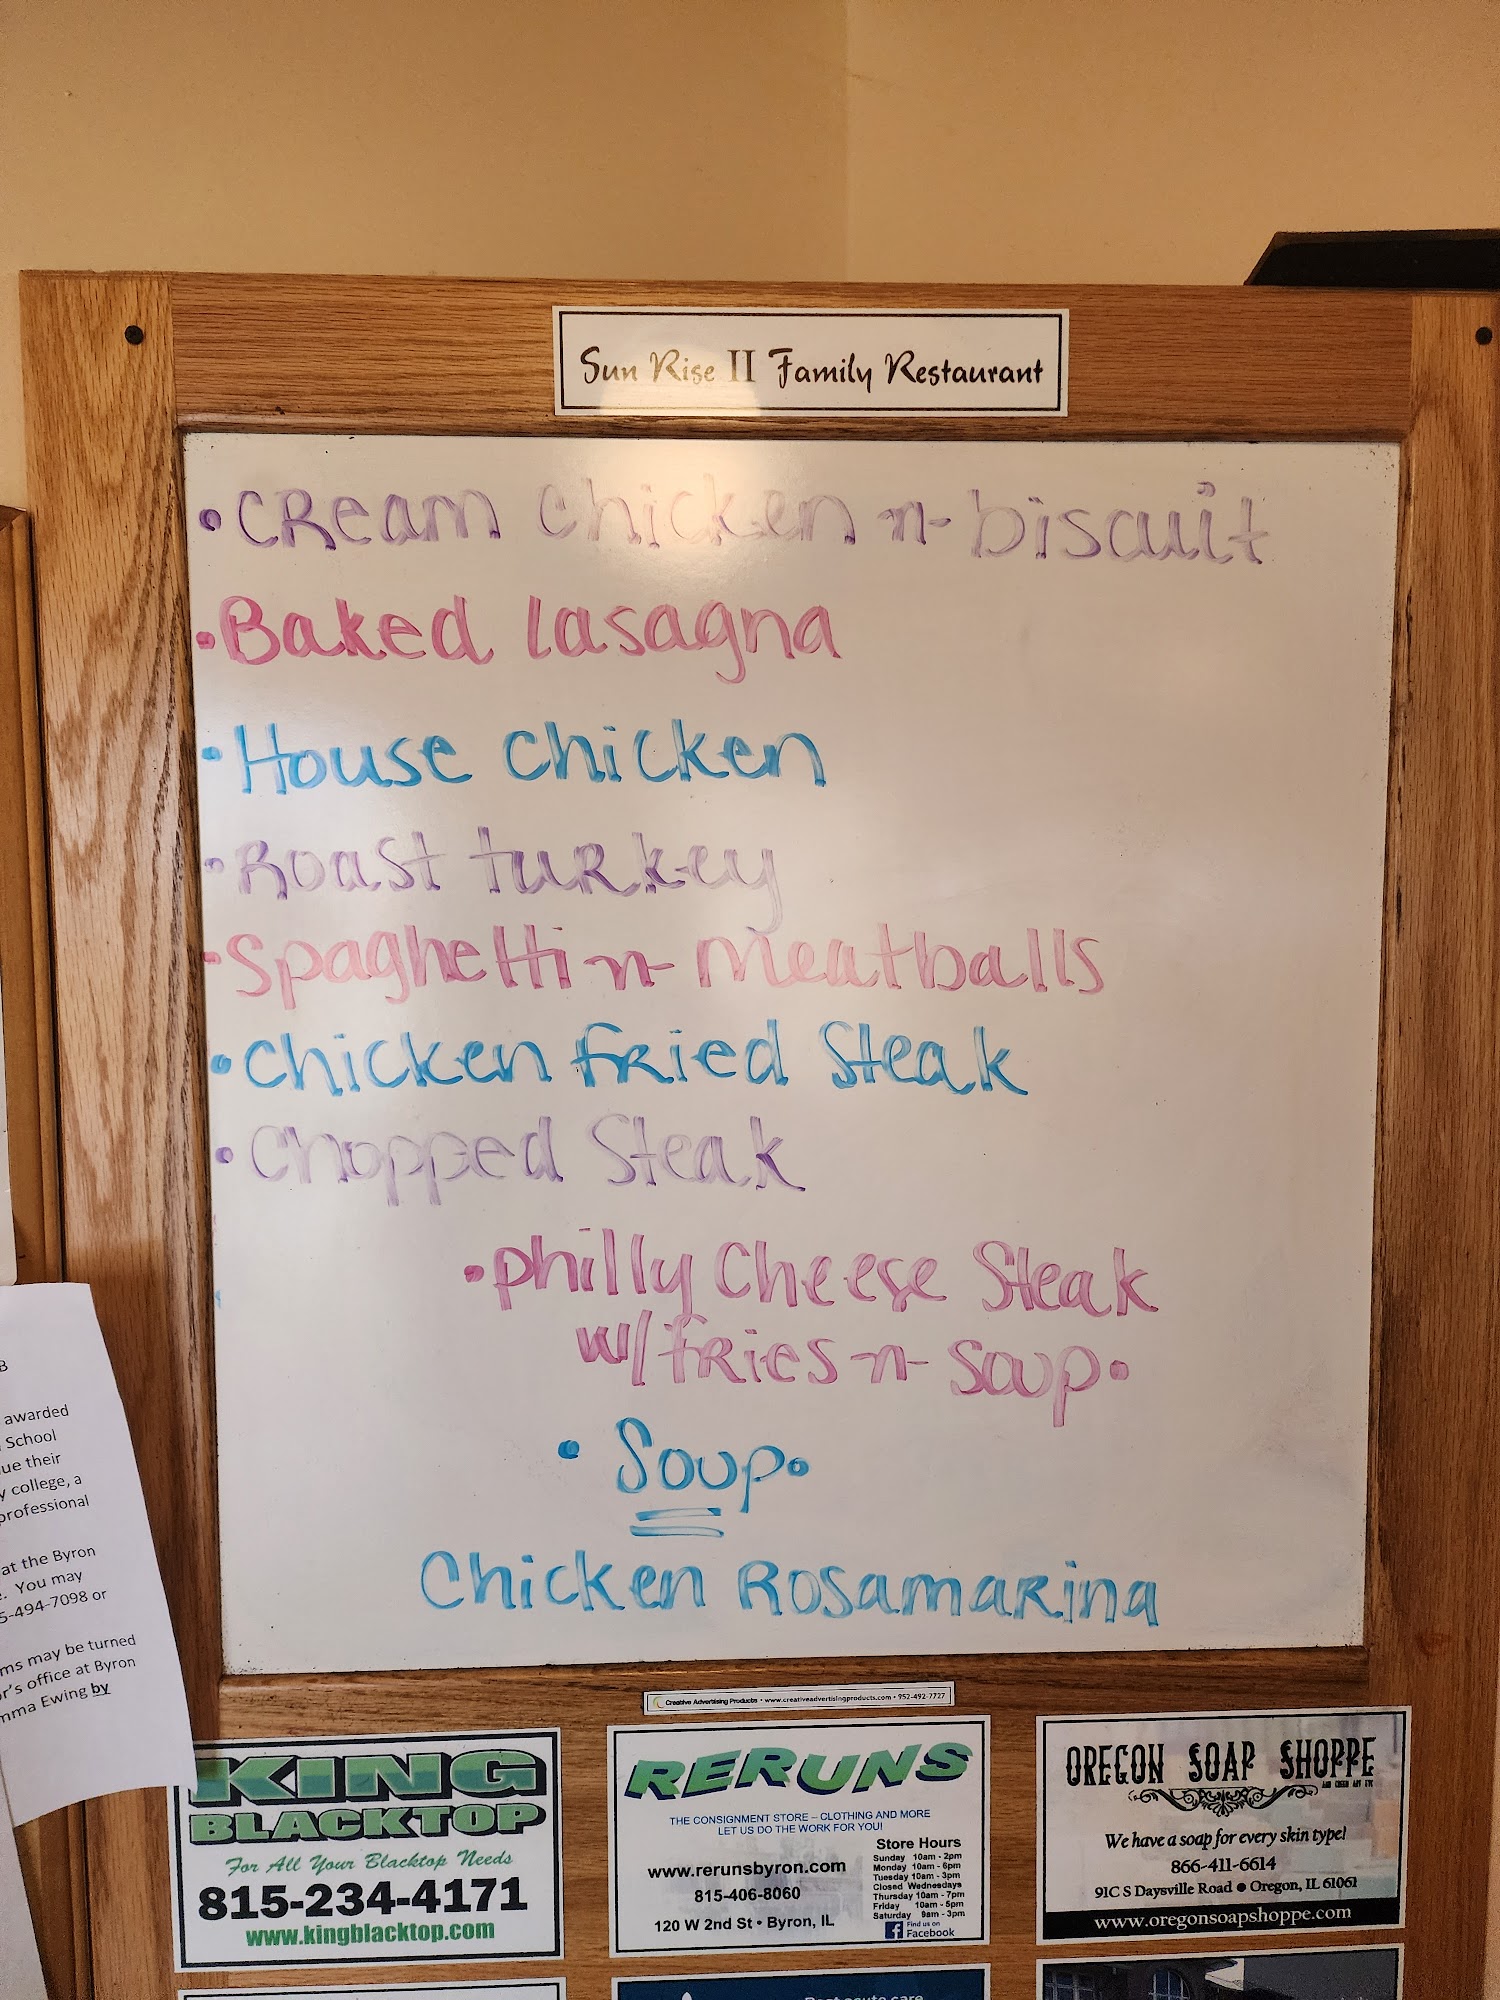 Sun Rise II Family Restaurant
• Cream Chicken -n- biscuit
• Baked lasagna
• House chicken
• Roast turkey
• Spaghetti -n- meatballs
• Chicken fried Steak
• Chopped Steak
• philly Cheese Steak
w/fries -n- soup •
• Soup •
Chicken Rosamarina
B
awarded
School
ue their
y college, a
professional
at the Byron
. You may
5-494-7098 or
ms may be turned
or's office at Byron
mma Ewing by
Creative Advertising Products • www.creativeadvertisingproducts.com • 952-492-7727
KING
BLACKTOP
For All Your Blacktop Needs
815-234-4171
www.kingblacktop.com
RERUNS
THE CONSIGNMENT STORE – CLOTHING AND MORE
LET US DO THE WORK FOR YOU!
www.rerunsbyron.com
815-406-8060
120 W 2nd St • Byron, IL
Store Hours
Sunday 10am - 2pm
Monday 10am - 6pm
Tuesday 10am - 3pm
Closed Wednesdays
Thursday 10am - 7pm
Friday 10am - 5pm
Saturday 9am - 3pm
Find us on
Facebook
OREGON SOAP SHOPPE
We have a soap for every skin type!
866-411-6614
91C S Daysville Road • Oregon, IL 61061
www.oregonsoapshoppe.com